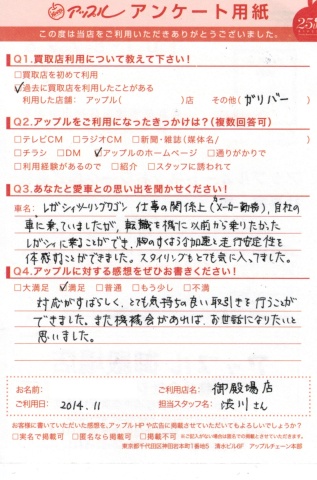 アップル アンケート用紙
この度は当店をご利用いただきありがとうございました。
Q1.買取店利用について教えて下さい!
□買取店を初めて利用
✓過去に買取店を利用したことがある
利用した店舗: アップル( )店 その他(ガリバー)
Q2.アップルをご利用になったきっかけは?(複数回答可)
□テレビCM □ラジオCM □新聞・雑誌(媒体名/ )
□チラシ □DM ✓アップルのホームページ □通りがかりで
□利用経験があるので □紹介 □スタッフに誘われて
Q3.あなたと愛車との思い出を聞かせください!
車名: レガシィツーリングワゴン 仕事の関係上(カーメーカー勤務)、自社の
車に乗っていましたが、転職を機に以前から乗りたかった
レガシィに乗ることができ、胸のすくような加速と走行安定性を
体感することができました。スタイリングもとても気に入ってました。
Q4.アップルに対する感想をぜひお書きください!
□大満足 ✓満足 □普通 □もう少し □不満
対応がすばらしく、とても気持ちの良い取引きを行うことが
できました。また機会があれば、お世話になりたいと
思いました。
お名前: ご利用店名: 御殿場店
ご利用日: 2014.11 担当スタッフ名: 渋川さん
お客様に書いていただいた感想を、アップルHPや広告に掲載させていただいてもよろしいでしょうか?
□実名で掲載可 □匿名なら掲載可 □掲載不可 ※ご記入がない場合は匿名での掲載とさせていただきます。
東京都千代田区神田岩本町1番地5 清水ビル6F アップルチェーン本部